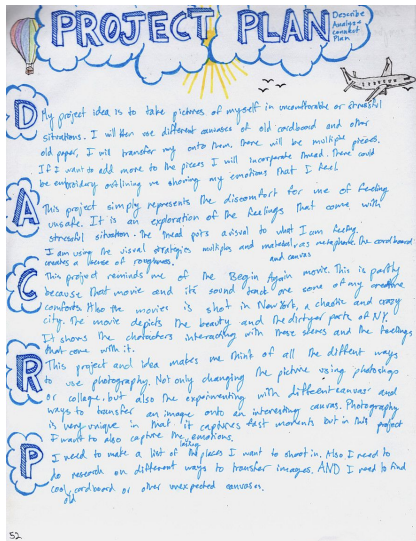 PROJECT PLAN
Describe
Analyze
connect
Plan
D
My project idea is to take pictures of myself in uncomfortable or stressful
situations. I will then use different canvases of old cardboard and other
old paper, I will transfer my onto them. There will be multiple pieces.
If I want to add more to the pieces I will incorporate thread. There could
be embroidary outlining me showing my emotions that I feel
A
This project simply represents the discomfort for me of feeling
unsafe. It is an exploration of the feelings that come with
stressful situation. The thread a visual to what I am feeling.
I am using the visual strategies multiples and material as metaphore. The cardboard
creates a sense of roughness and canvas
C
This project reminds me of the Begin Again movie. This is partly
because that movie and its sound track are some of my
comforts. Also the movies is shot in New York, a chaotic and crazy
city. The movie depicts the beauty and the dirtyer parts of NY.
It shows the characters interacting with those stenes and the feelings
that come with it.
R
This project and idea makes me think of all the diffent ways
to use photography. Not only changing the picture using photoshop
or collage, but also the experimenting with different canvas and
ways to transfer an image onto an interesting canvas. Photography
is very unique in that it captures fast moments but in this project
I want to also capture the emotions.
P
I need to make a list of the places I want to shoot in. Also I need to
do research on different ways to transfer images. AND I need to find
cool, old cardboard or other unexpected canvases.
52